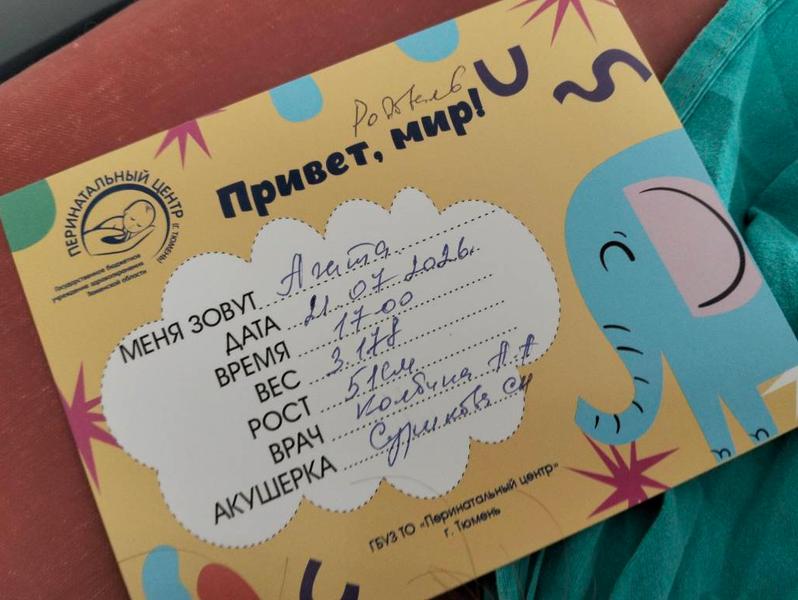 Привет, мир!
ПЕРИНАТАЛЬНЫЙ ЦЕНТР
(Г. ТЮМЕНЬ)
Государственное бюджетное
учреждение здравоохранения
Тюменской области
МЕНЯ ЗОВУТ Агата
ДАТА 21.07.2026г.
ВРЕМЯ 17 00
ВЕС 3.178
РОСТ 51см
ВРАЧ Колбина А.А
АКУШЕРКА
ГБУЗ ТО «Перинатальный центр»
г. Тюмень